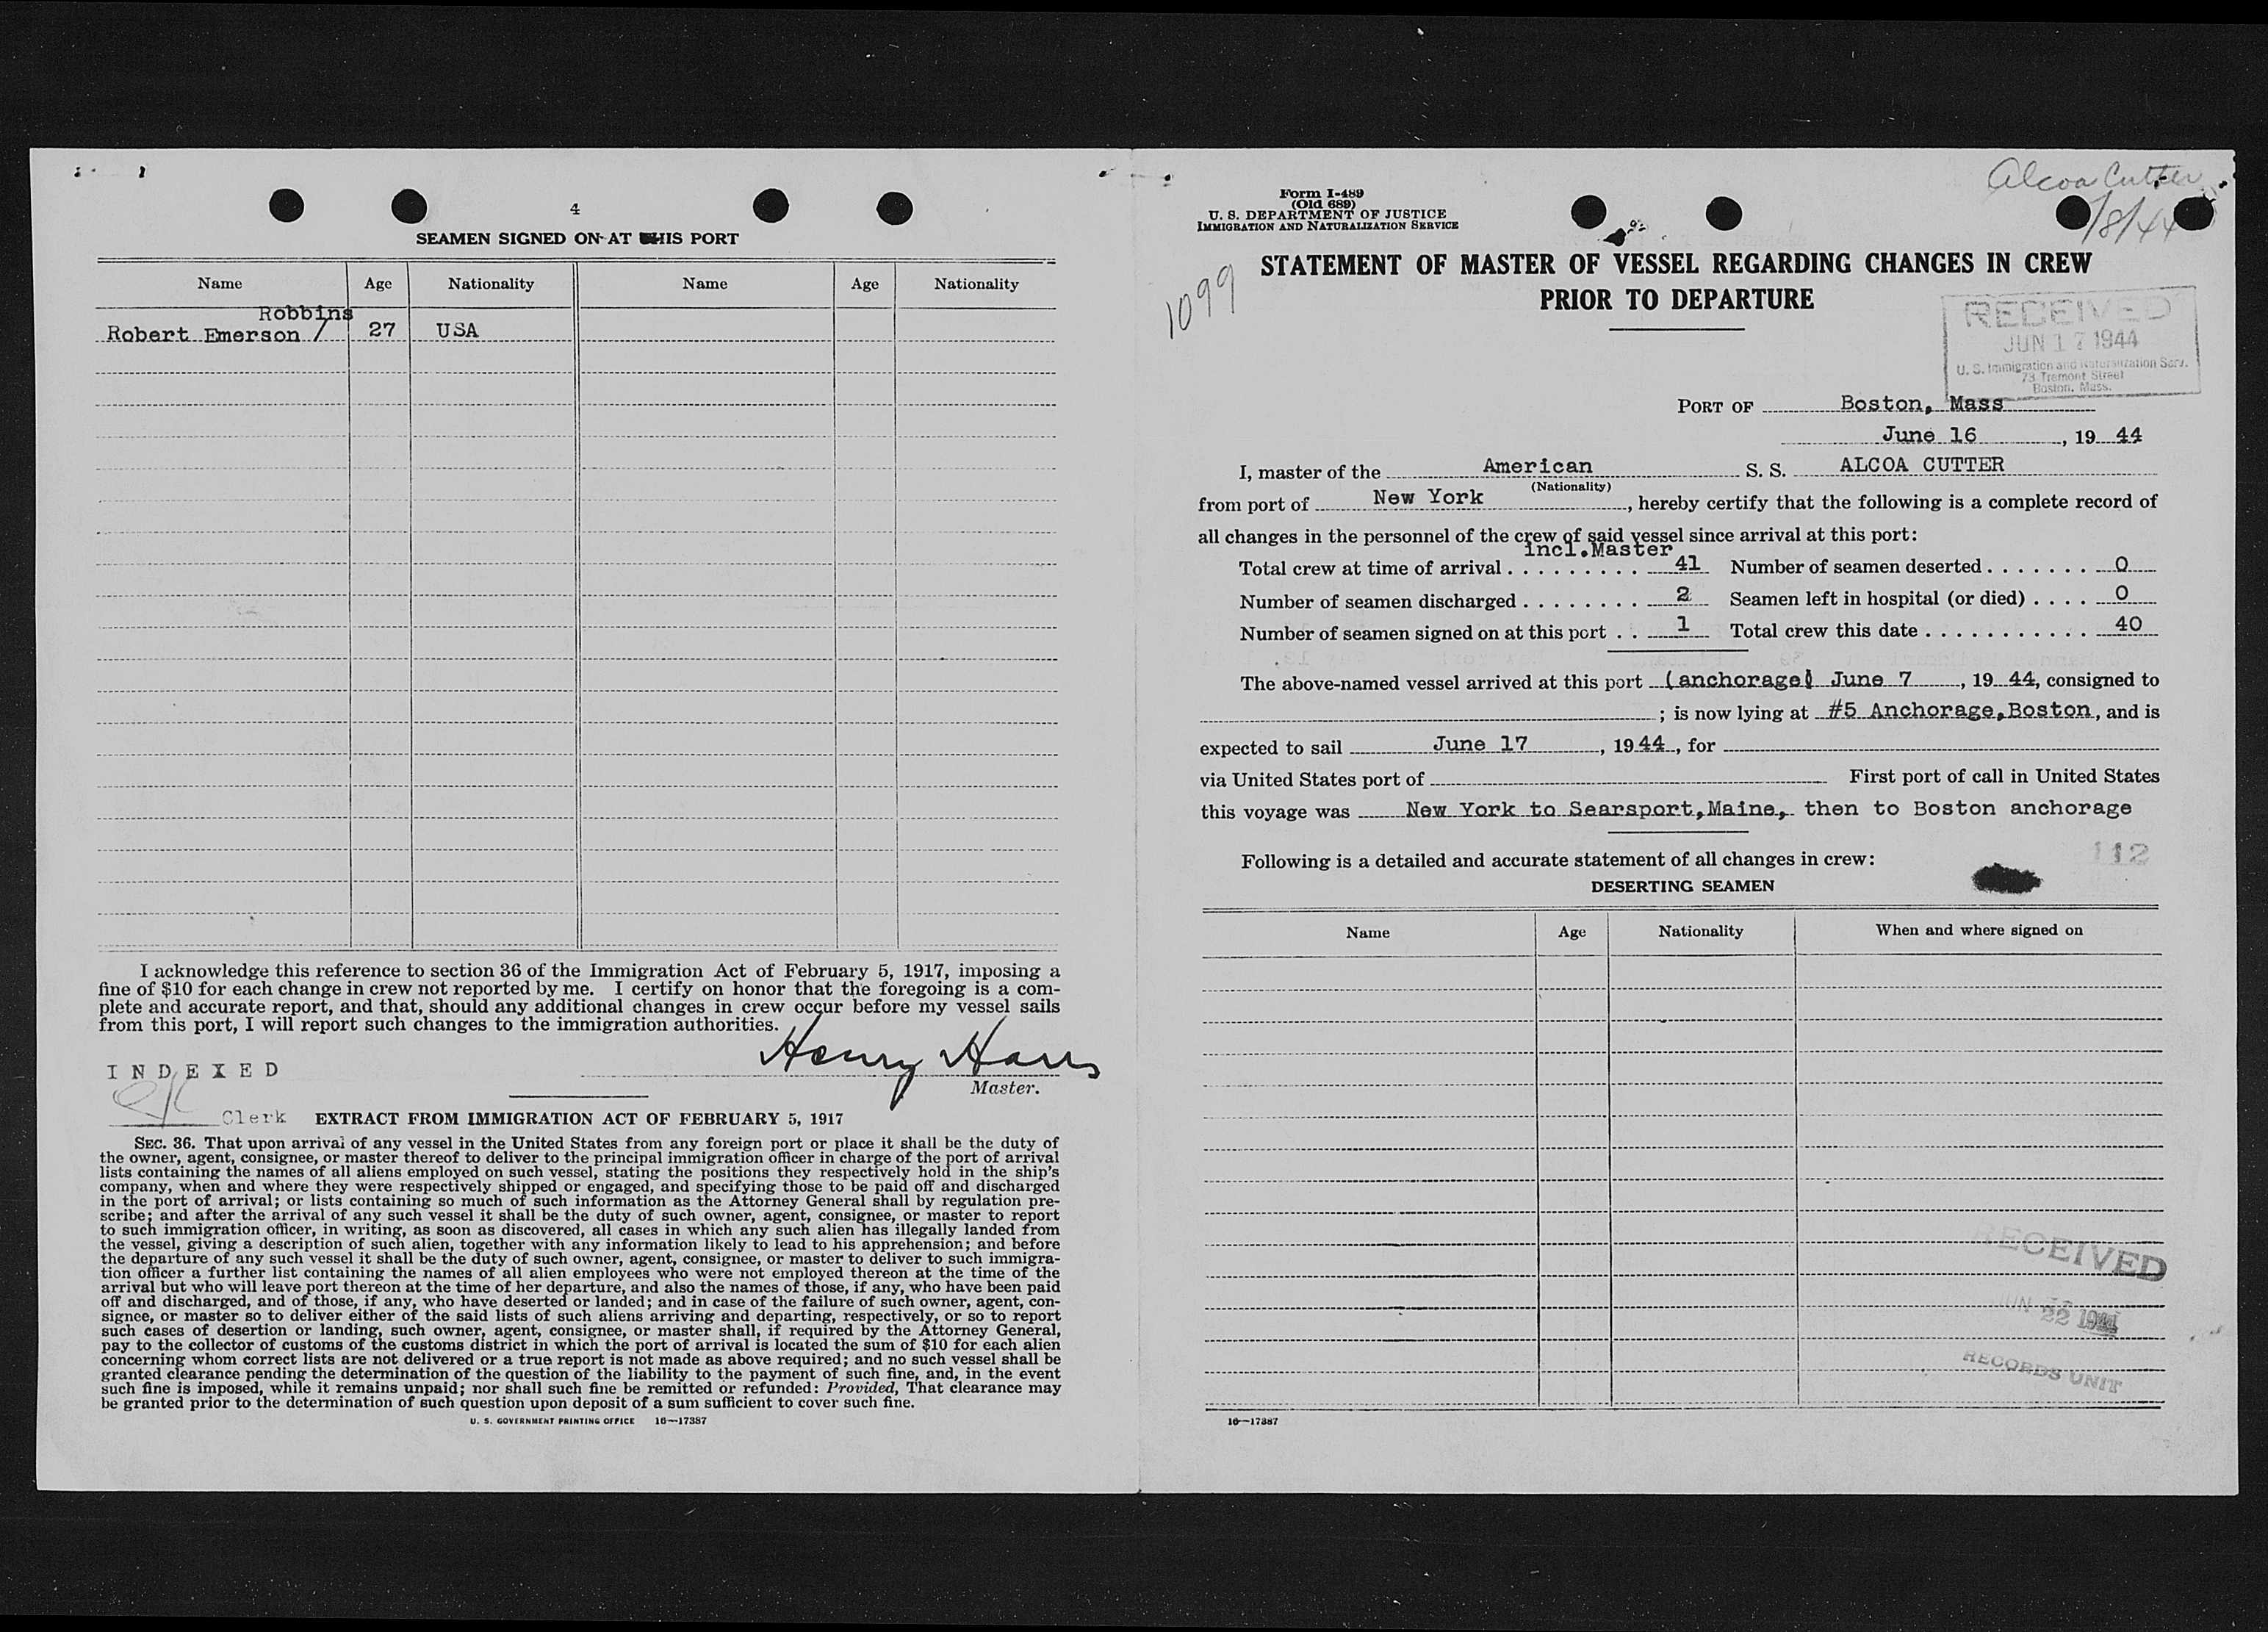 4
SEAMEN SIGNED ON AT THIS PORT
Name Age Nationality Name Age Nationality
Robbins
Robert Emerson / 27 USA
I acknowledge this reference to section 36 of the Immigration Act of February 5, 1917, imposing a
fine of $10 for each change in crew not reported by me. I certify on honor that the foregoing is a com-
plete and accurate report, and that, should any additional changes in crew occur before my vessel sails
from this port, I will report such changes to the immigration authorities.
Henry
INDEXED
Master.
Clerk
EXTRACT FROM IMMIGRATION ACT OF FEBRUARY 5, 1917
SEC. 36. That upon arrival of any vessel in the United States from any foreign port or place it shall be the duty of
the owner, agent, consignee, or master thereof to deliver to the principal immigration officer in charge of the port of arrival
lists containing the names of all aliens employed on such vessel, stating the positions they respectively hold in the ship's
company, when and where they were respectively shipped or engaged, and specifying those to be paid off and discharged
in the port of arrival; or lists containing so much of such information as the Attorney General shall by regulation pre-
scribe; and after the arrival of any such vessel it shall be the duty of such owner, agent, consignee, or master to report
to such immigration officer, in writing, as soon as discovered, all cases in which any such alien has illegally landed from
the vessel, giving a description of such alien, together with any information likely to lead to his apprehension; and before
the departure of any such vessel it shall be the duty of such owner, agent, consignee, or master to deliver to such immigra-
tion officer a further list containing the names of all alien employees who were not employed thereon at the time of the
arrival but who will leave port thereon at the time of her departure, and also the names of those, if any, who have been paid
off and discharged, and of those, if any, who have deserted or landed; and in case of the failure of such owner, agent, con-
signee, or master so to deliver either of the said lists of such aliens arriving and departing, respectively, or so to report
such cases of desertion or landing, such owner, agent, consignee, or master shall, if required by the Attorney General,
pay to the collector of customs of the customs district in which the port of arrival is located the sum of $10 for each alien
concerning whom correct lists are not delivered or a true report is not made as above required; and no such vessel shall be
granted clearance pending the determination of the question of the liability to the payment of such fine, and, in the event
such fine is imposed, while it remains unpaid; nor shall such fine be remitted or refunded: Provided, That clearance may
be granted prior to the determination of such question upon deposit of a sum sufficient to cover such fine.
U. S. GOVERNMENT PRINTING OFFICE 16—17387
Alcoa Cutter
/8/44
Form I-489
(Old 689)
U. S. DEPARTMENT OF JUSTICE
IMMIGRATION AND NATURALIZATION SERVICE
1099
STATEMENT OF MASTER OF VESSEL REGARDING CHANGES IN CREW
PRIOR TO DEPARTURE
RECEIVED
JUN 17 1944
U. S. Immigration and Naturalization Serv.
73 Tremont Street
Boston, Mass.
PORT OF Boston, Mass
June 16, 19 44
I, master of the American S. S. ALCOA CUTTER
(Nationality)
from port of New York, hereby certify that the following is a complete record of
all changes in the personnel of the crew of said vessel since arrival at this port:
incl.Master
Total crew at time of arrival . . . . . . . . . 41 Number of seamen deserted . . . . . . . 0
Number of seamen discharged . . . . . . . . 2 Seamen left in hospital (or died) . . . . 0
Number of seamen signed on at this port . . 1 Total crew this date . . . . . . . . . . . 40
The above-named vessel arrived at this port (anchorage) June 7, 19 44, consigned to
; is now lying at #5 Anchorage,Boston, and is
expected to sail June 17, 1944, for
via United States port of First port of call in United States
this voyage was New York to Searsport,Maine, then to Boston anchorage
Following is a detailed and accurate statement of all changes in crew:
112
DESERTING SEAMEN
Name Age Nationality When and where signed on
RECEIVED
JUN 22 1944
RECORDS UNIT
16—17387